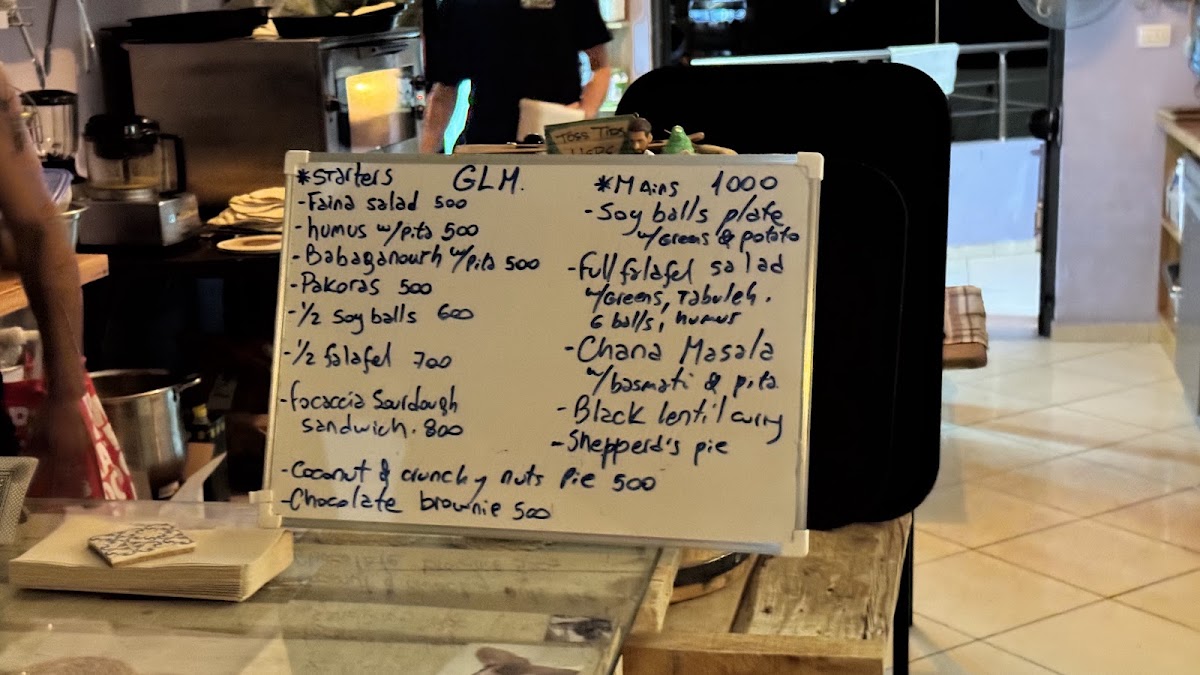 Toss Tips
HERE
GLM.
*Starters
-Faina salad 500
-humus w/pita 500
-Babaganoush w/pita 500
-Pakoras 500
-1/2 Soy balls 600
-1/2 falafel 700
-focaccia Sourdough
sandwich. 800
-Coconut & crunchy nuts pie 500
-Chocolate brownie 500
*Mains 1000
-Soy balls plate
w/Greens & potato
-Full falafel salad
w/Greens, Tabuleh.
6 balls, humus
-Chana Masala
w/basmati & pita
-Black lentil curry
-Shepperd's pie